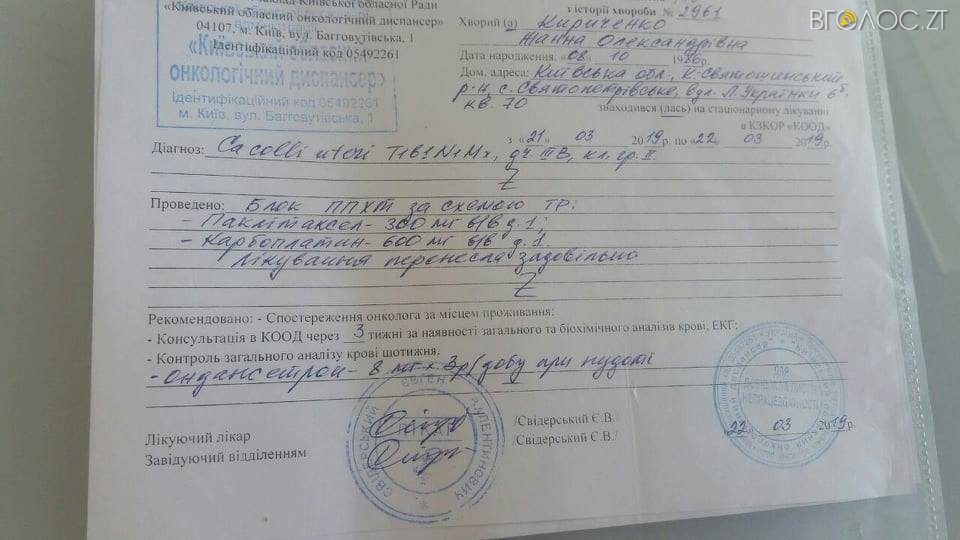 ВГОЛОС.ZT
заклад Київської обласної Ради
«Київський обласний онкологічний диспансер»
04107, м. Київ, вул. Багговутівська, 1
Ідентифікаційний код 05492261
«Київський обласний
онкологічний диспансер»
Ідентифікаційний код 05492261
м. Київ, вул. Багговутівська, 1
з історії хвороби № 2961
Хворий (а) Кириченко
Жанна Олександрівна
Дата народження: «08» 10 1986р.
Дом. адреса: Київська обл, К-Святошинський
р-н, с. Святопетрівське, вул. Л. Українки 6б
кв. 70
знаходився (лась) на стаціонарному лікуванні
в КЗКОР «КООД»
з «21» 03 2019р. по «22» 03 2019р.
Діагноз: Ca colli uteri T1B1N1Mx, ст. IIIB, кл. гр. II.
Проведено: Блок ППХТ за схемою TP:
- Паклітаксел - 300 мг в/в д. 1;
- Карбоплатин - 600 мг в/в д. 1.
Лікування перенесла задовільно
Рекомендовано: - Спостереження онколога за місцем проживання;
- Консультація в КООД через 3 тижні за наявності загального та біохімічного аналізів крові, ЕКГ;
- Контроль загального аналізу крові щотижня.
- Ондансетрон - 8 мг х 3р/добу при нудоті
Лікуючий лікар /Свідерський Є.В./
Завідуючий відділенням /Свідерський Є.В./
СВІДЕРСЬКИЙ ЄВГЕН ВАЛЕНТИНОВИЧ
ЛІКАР
ДЛЯ
НЕПРАЦЕЗДАТНОСТІ
22 03 2019р.